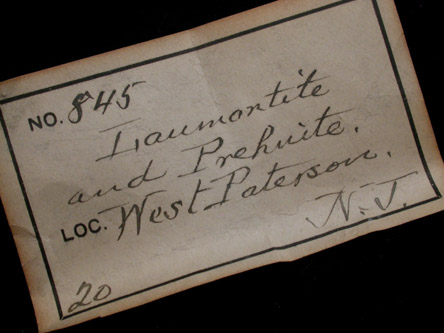 NO. 845
Laumontite
and Prehnite.
LOC. West Paterson.
N. J.
20